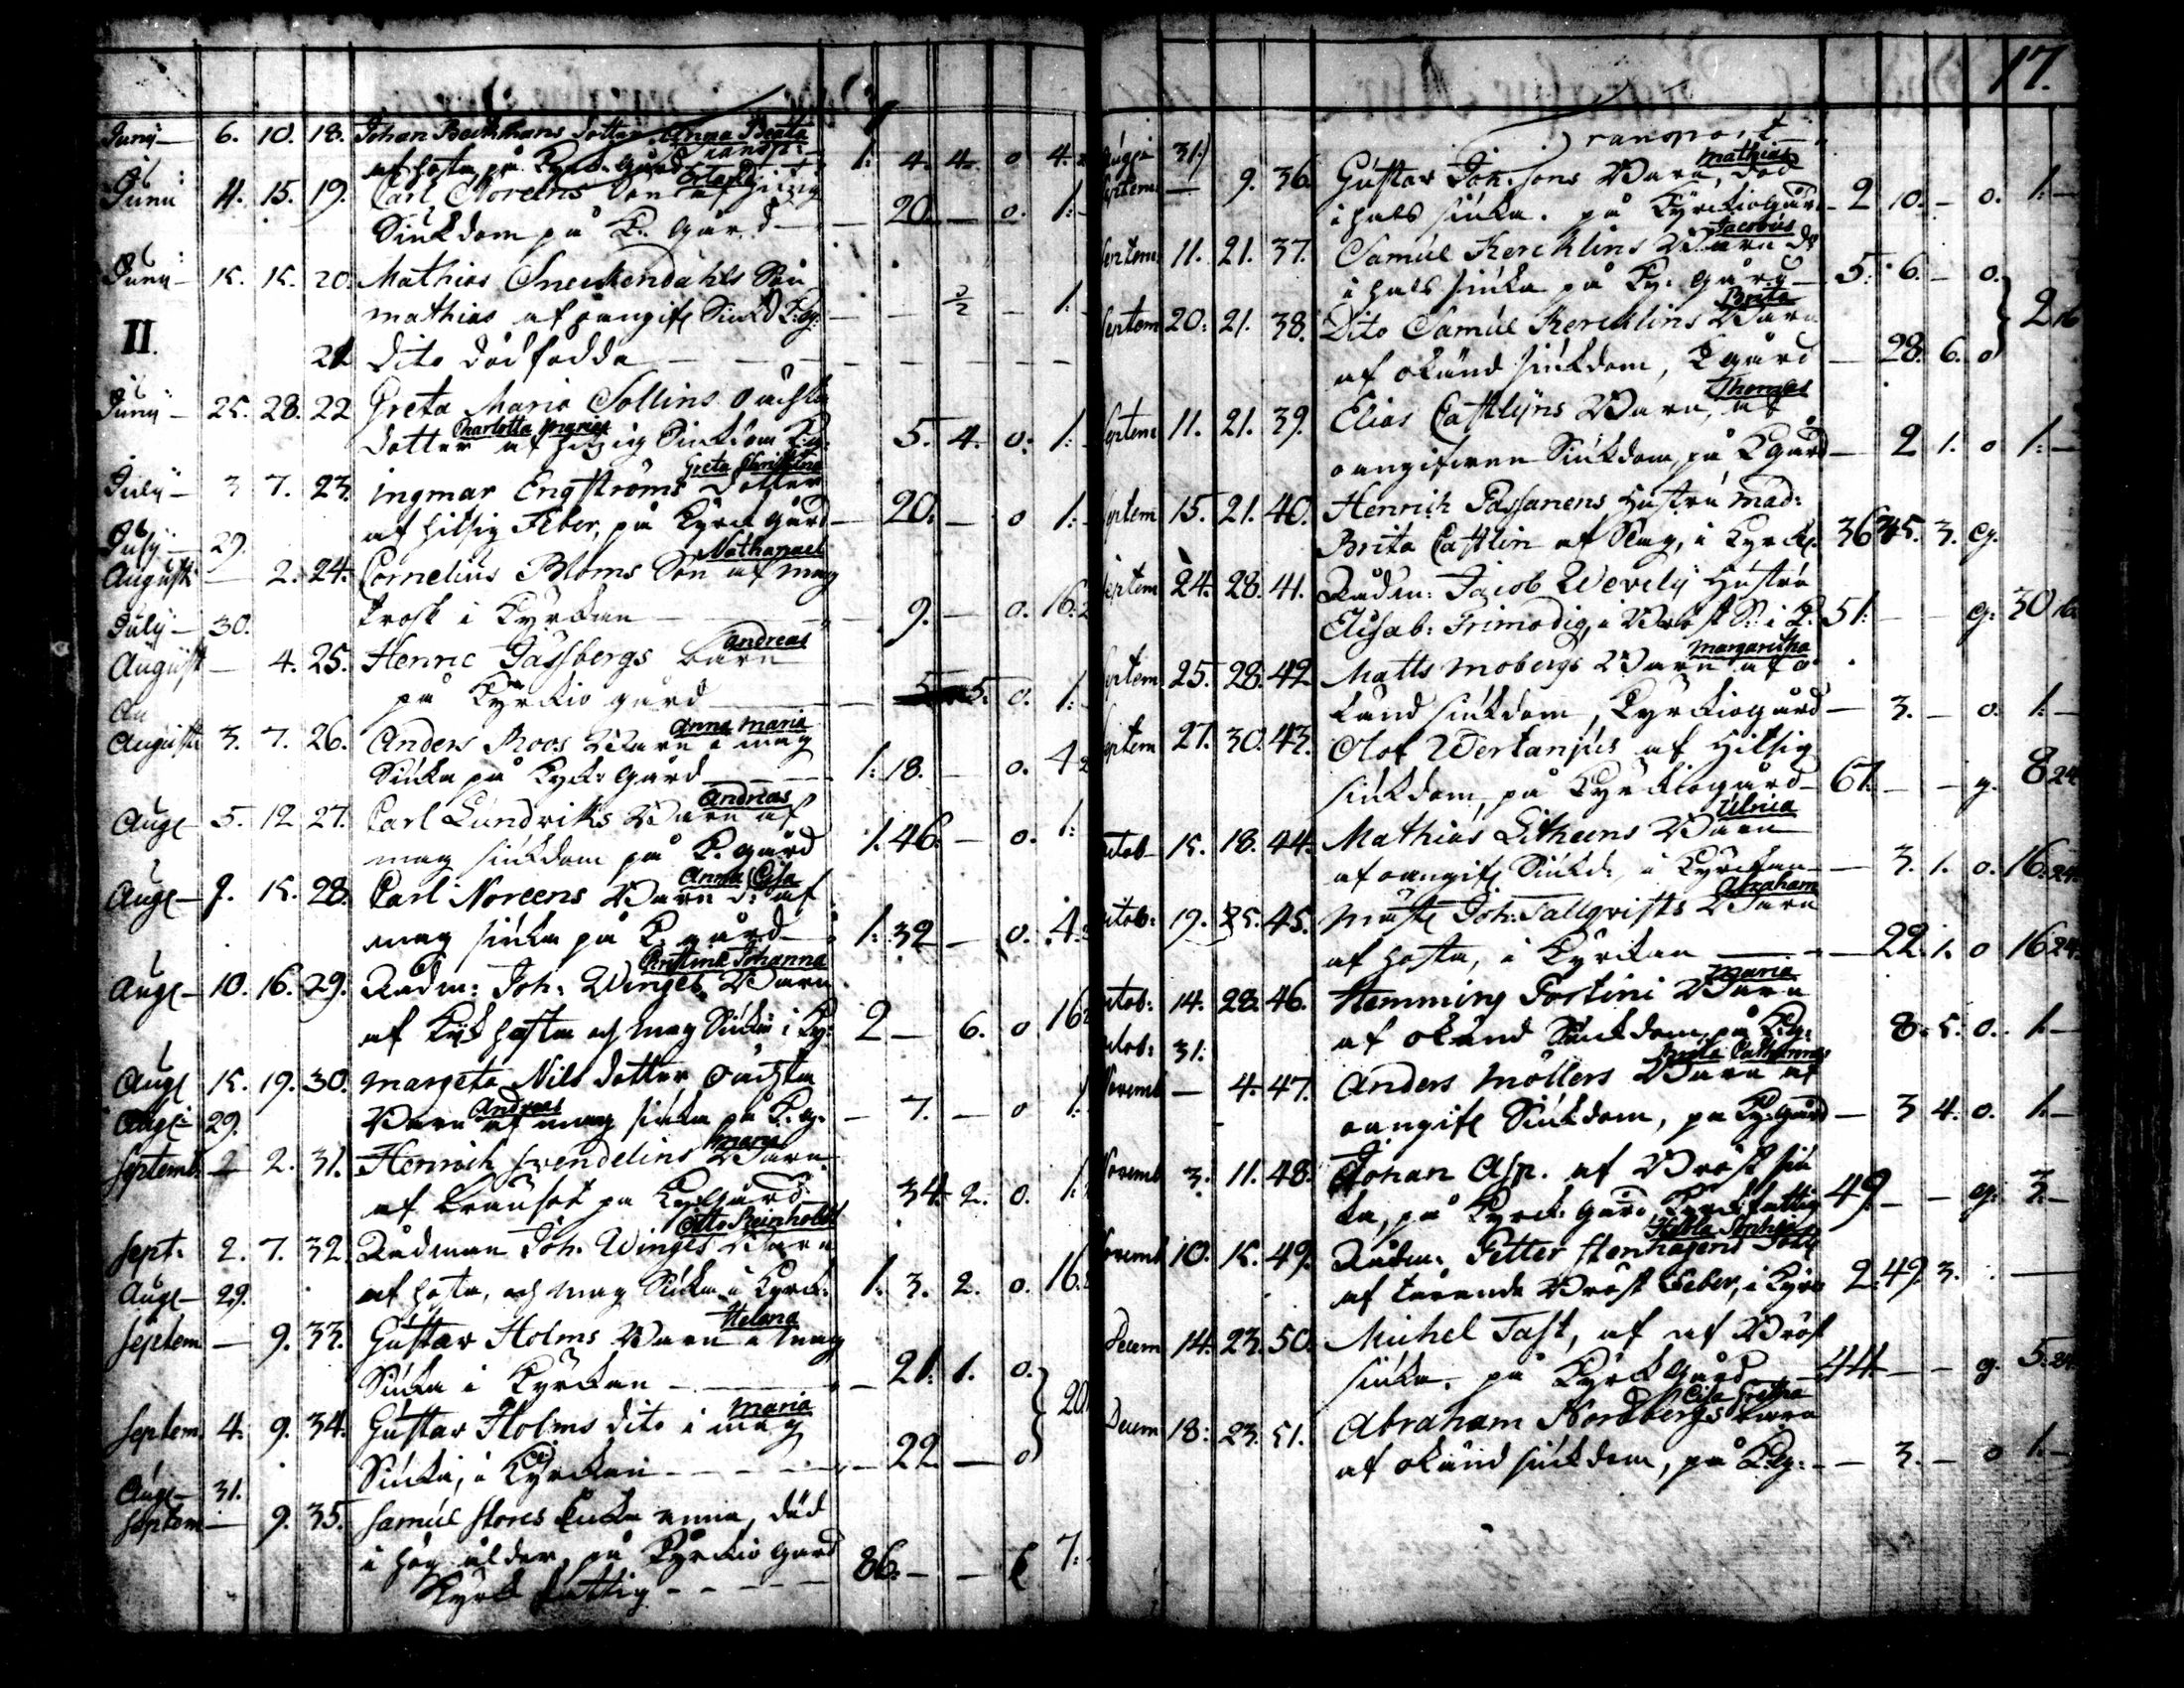 17.
Juny 6. 10. 18. Johan Beckmans dotter Anna Beata
af hosta på Kyrk. gård Transp: 1: 4. 4. 0 4.
Juny 11. 15. 19. Carl Noreens Son af hitzig
Siukdom på K. gård — 20. — 0. 1:
Juny 15. 15. 20. Mathias Sneckendahls Son
mathias af oangifv Siukd K:g: — — 1:
II. 21 Dito dödfödda
Juny 25. 28. 22 Greta Maria Sollins oächta
dotter Charlotta Maria af hitzig Siukdom K:g: 5. 4. 0. 1:
July 3 7. 23. Ingmar Engströms dotter Greta Christina
af hitsig Feber, på Kyrck gård — 20. — 0 1:
July 29.
August — 2. 24. Cornelius Bloms Son Nathanael af mag
i Kyrckan 9. — 0. 16:
July 30.
August — 4. 25. Henric Jassbergs barn Andreas
på Kyrkio gård 5. 0. 1:
August 3. 7. 26. Anders Roos Barn Anna Maria i mag
Siuka på Kyck: Gård 1: 18. — 0. 4
Aug 5. 12 27. Carl Lundviks Barn Andreas af
mag siukdom på K. gård 1. 46. — 0. 1:
Aug 9. 15. 28. Carl Noreens Barn Anna Cisa d: af
mag siuka på K. gård 1: 32 — 0. 4:
Aug 10. 16. 29. Rådm: Joh: Winges Barn Christina Johanna
af Kik hosta och mag Siuka i Ky: 2 — 6. 0 16
Aug 15. 19. 30. Margeta Nils dotter oächta
Aug: 29. Barn Andreas af mag siuka på K.g. — 7. — 0 1:
Septemb 2 2. 31. Henrich Svendelins Barn Maria
af på Kyrkgård 34. 2. 0. 1:
Sept: 2. 7. 32. Rådman Joh. Winges Barn Otto Reinholdt
Aug 29. af hosta, och mag Siuka i Kyrck: 1: 3. 2. 0. 16.
Septem — 9. 33. Gustav Holms Barn Helena i mag
Siuka i Kyrckan — 21. 1. 0.
Septem 4. 9. 34. Gustav Holms dito Maria i mag
Siuka, i Kyrckan — 22 — 0 20
Aug 31.
Septem — 9. 35. Samuel Stores Enka Anna, död
i hög ålder, på Kyrkio gård 86. — — 7:
Kyrk fattig
Transport
Aug: 31.
Septem — 9. 36. Gustav Joh:sons Barn Mathias, död
i hals siuka. på Kyrkiogård 2 10. — 0. 1:—
Septem 11. 21. 37. Samuel Kercklins Barn Jacobus
i hals siuka på Ky: gård 5: 6. — 0.
Septem 20: 21. 38. Dito Samuel Kercklins Barn Brita
af okänd siukdom, K gård — 28. 6. 0 2 16
Septem 11. 21. 39. Elias Castlyns Barn Thomas, af
oangifven Siukdom, på K gård — 2 1. 0 1:—
Septem 15. 21. 40. Henrich Passanens Hustru Mad:
Brita Castlin af Slag, i Kyrk. 36 35. 3. g.
Septem 24. 28. 41. Rådm: Jacob Wevelij Hustru
Elisab: Frimodig, i Bröst S. i K. 51. — — g: 30 16
Septem 25. 28. 42 Matts Mobergs Barn Margaretha af o
känd siukdom, Kyrkiogård — 3. — 0. 1:—
Septem 27. 30. 43. Olof Wertanjus af Hitsig
siukdom, på Kyrkiogård 67. — — g. 8 24
Octob 15. 18. 44. Mathias Litheens Barn Ulrica
af oangifv Siukd., i Kyrckan — 3. 1. 0. 16:24.
Octob: 19. 25. 45. Joh: Tallqvists Barn Abraham
af hosta, i Kyrckan — 22. 1. 0 16 24.
Octob: 14. 28. 46. Hemming Fortini Barn Maria
af okänd Siukdom på K.g. 8. 5. 0. 1.—
Octob: 31.
Novemb — 4. 47. Anders Möllers Barn Brita Catharina af
oangifv Siukdom, på Ky:gård — 3 4. 0. 1.—
Novemb 3. 11. 48. Johan Asp. af Bröst siu
ka, på Kyrck. Gård, Kyrckfattig 49. — — g. 3.—
Novemb 10. 15. 49. Rådm: Petter Stenhagens
af tärande Bröst Feber, i Kyrc 2. 49. 3.
Decem 14. 23. 50. Michel Tast, af af Bröst
siuka. på Kyrck Gård 44 — — g. 5.24
Decem 18: 23. 51. Abraham Nordbergs barn Cisa Gretha
af okänd siukdom, på K:g: — 3. — 0 1.—